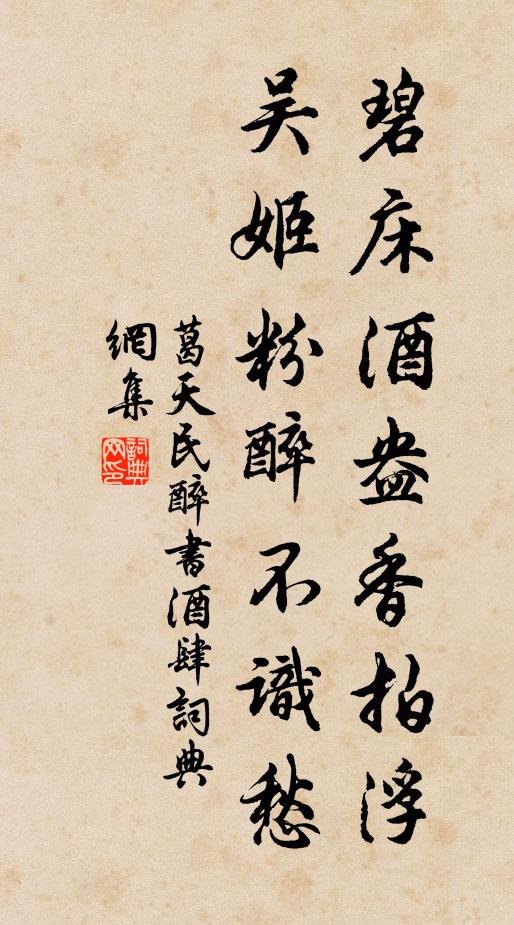 碧床酒盎香拍浮
吴姬粉醉不識愁
葛天民醉書酒肆詞典
網集
詞典网印